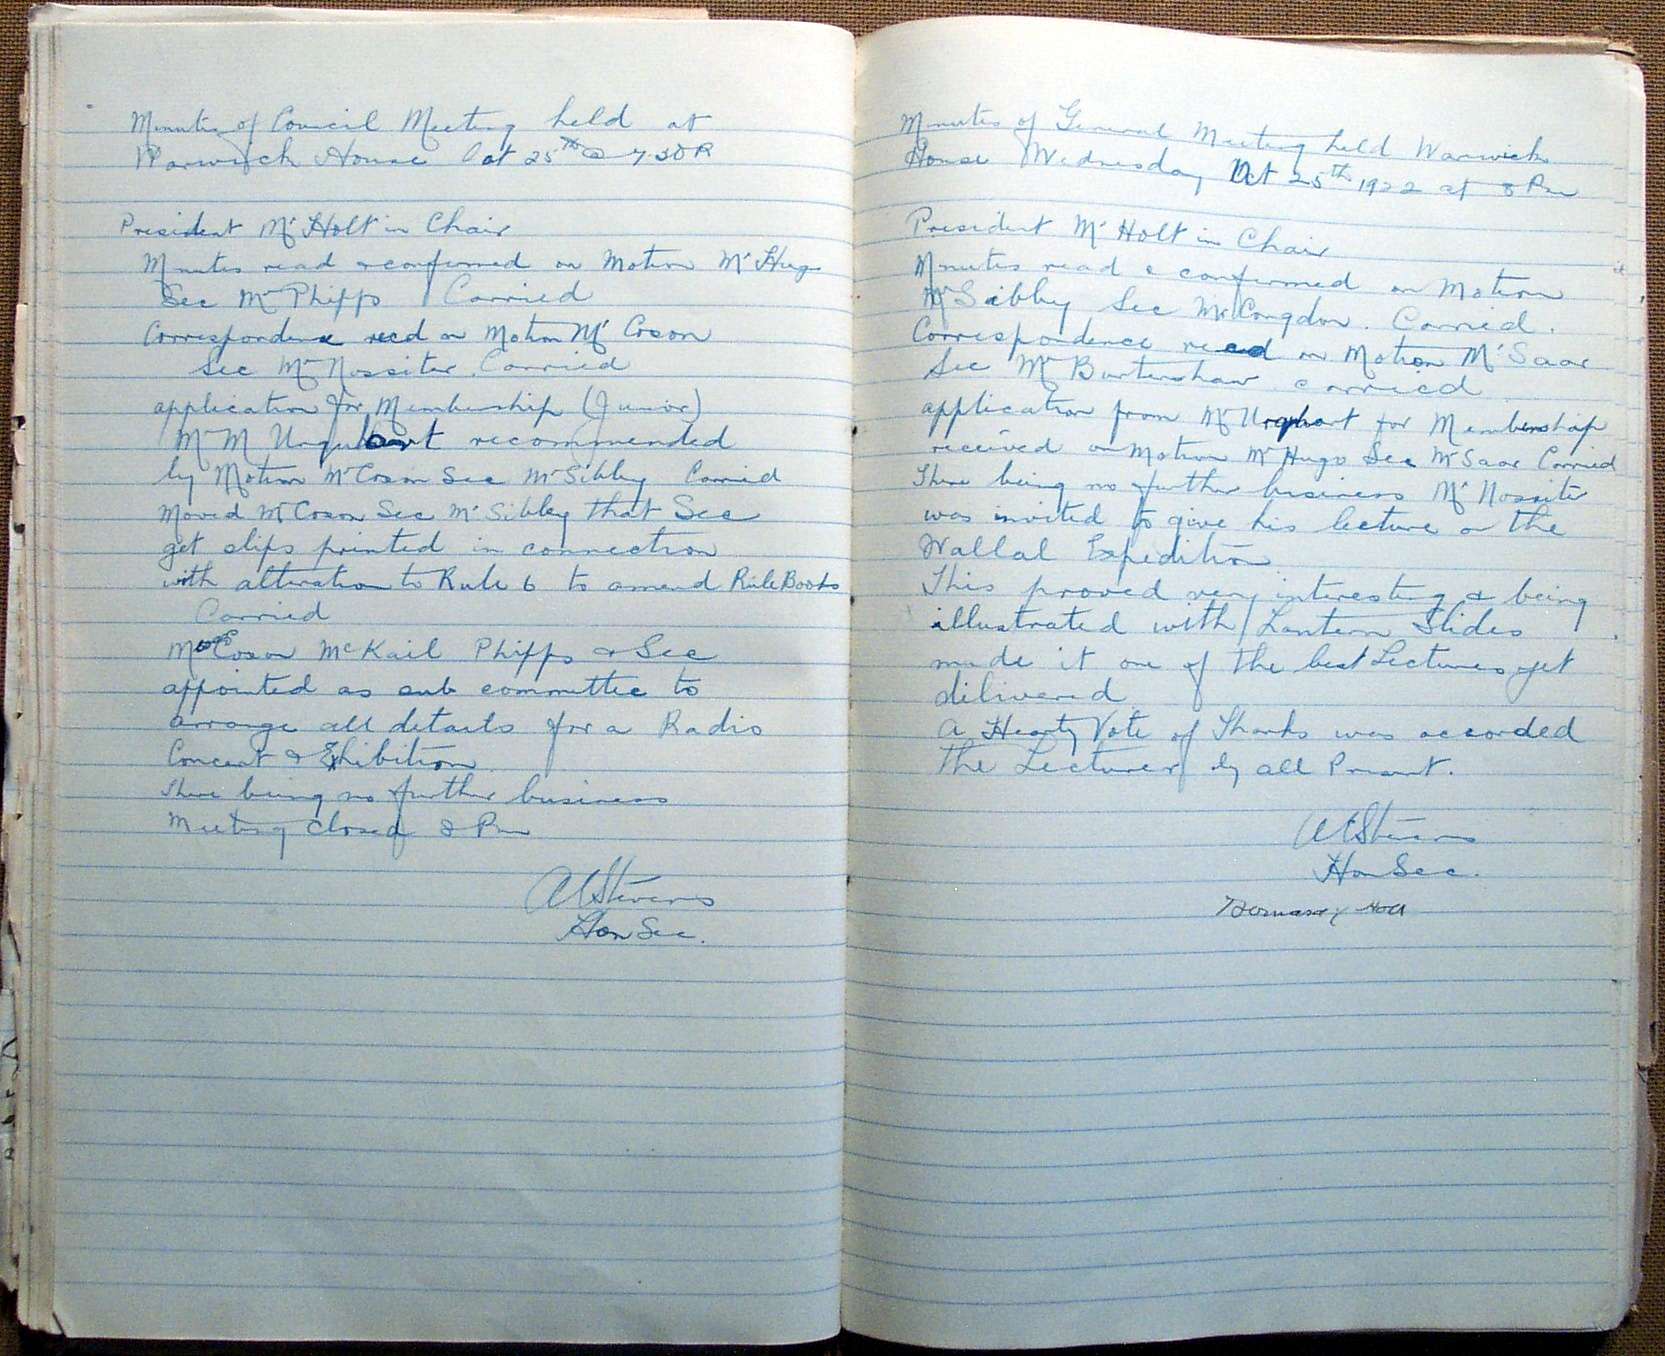 Minutes of Council Meeting held at
Warwick House Oct 25th @ 7.30 P
President Mr Holt in Chair
Minutes read & confirmed on Motion Mr Hugo
Sec Mr Phipps Carried
Correspondence recd on Motion Mr Coxon
Sec Mr Nossiter Carried
application for Membership (Junior)
Mr M Urquhart recommended
by Motion Mr Coxon Sec Mr Sibley Carried
Moved Mr Coxon Sec Mr Sibley that Sec
get slips printed in connection
with alteration to Rule 6 to amend Rule Books
Carried
Coxon McKail Phipps & Sec
appointed as sub committee to
arrange all details for a Radio
Concert & Exhibition
There being no further business
Meeting closed 8 Pm
Stevens
Hon Sec.
Minutes of General Meeting held Warwick
House Wednesday Oct 25th 1922 at 8 Pm
President Mr Holt in Chair
Minutes read & confirmed on Motion
Mr Sibley Sec Mr Congdon. Carried.
Correspondence read on Motion Mr Saar
Sec Mr Burtenshaw carried
application from Mr Urquhart for Membership
received on Motion Mr Hugo Sec Mr Saar Carried
There being no further business Mr Nossiter
was invited to give his lecture on the
Wallal Expedition
This proved very interesting & being
illustrated with Lantern Slides
made it one of the best Lectures yet
delivered
A Hearty Vote of Thanks was accorded
the Lecturer by all Present.
Stevens
Hon Sec.
Holt